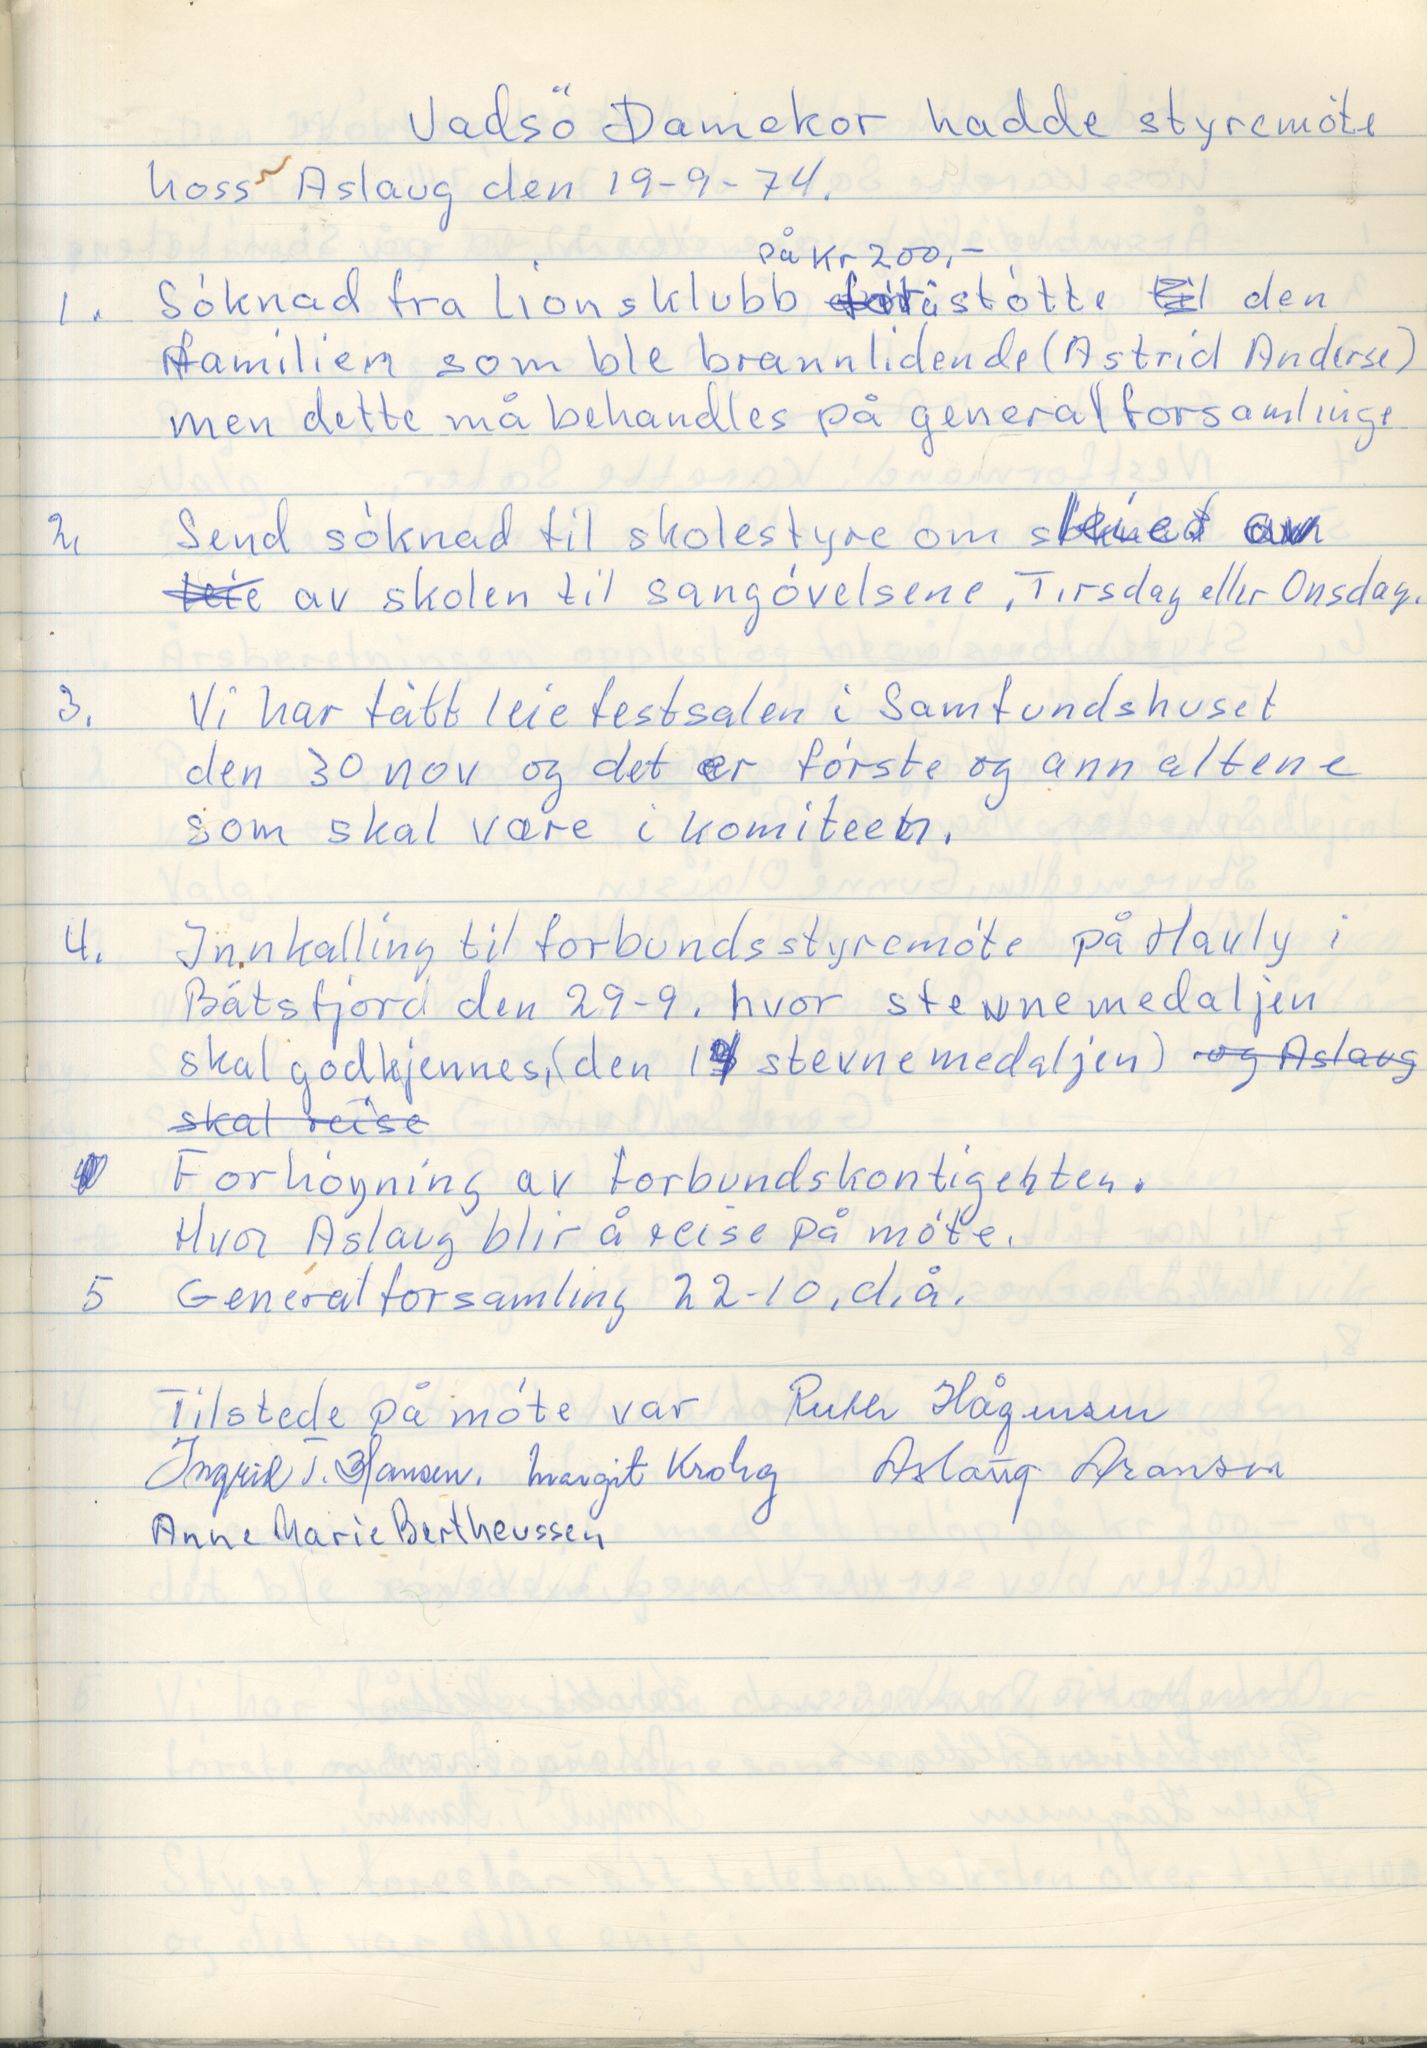 Vadsö Damekor hadde styremöte
hoss Aslaug den 19-9-74.
på kr 200,-
1. Söknad fra Lionsklubb støtte til den
familien som ble brannlidende (Astrid Anderse)
men dette må behandles på generalforsamlinge
2. Send söknad til skolestyre om leie
leie av skolen til sangövelsene, Tirsdag eller Onsdag.
3. Vi har fått leie festsalen i Samfundshuset
den 30 nov og det er förste og ann altene
som skal være i komiteen.
4. Innkalling til forbundsstyremöte på Havly i
Båtsfjord den 29-9. hvor stevnemedaljen
skal godkjennes, (den stevnemedaljen) og Aslaug
skal reise
Forhöyning av forbundskontigenten.
Hvor Aslaug blir å reise på möte.
5 Generalforsamling 22-10. d.å.
Tilstede på möte var Ruth Hågensen
Ingrid T. Hansen. Margit Krohg Aslaug Aronsen
Anne Marie Bertheussen